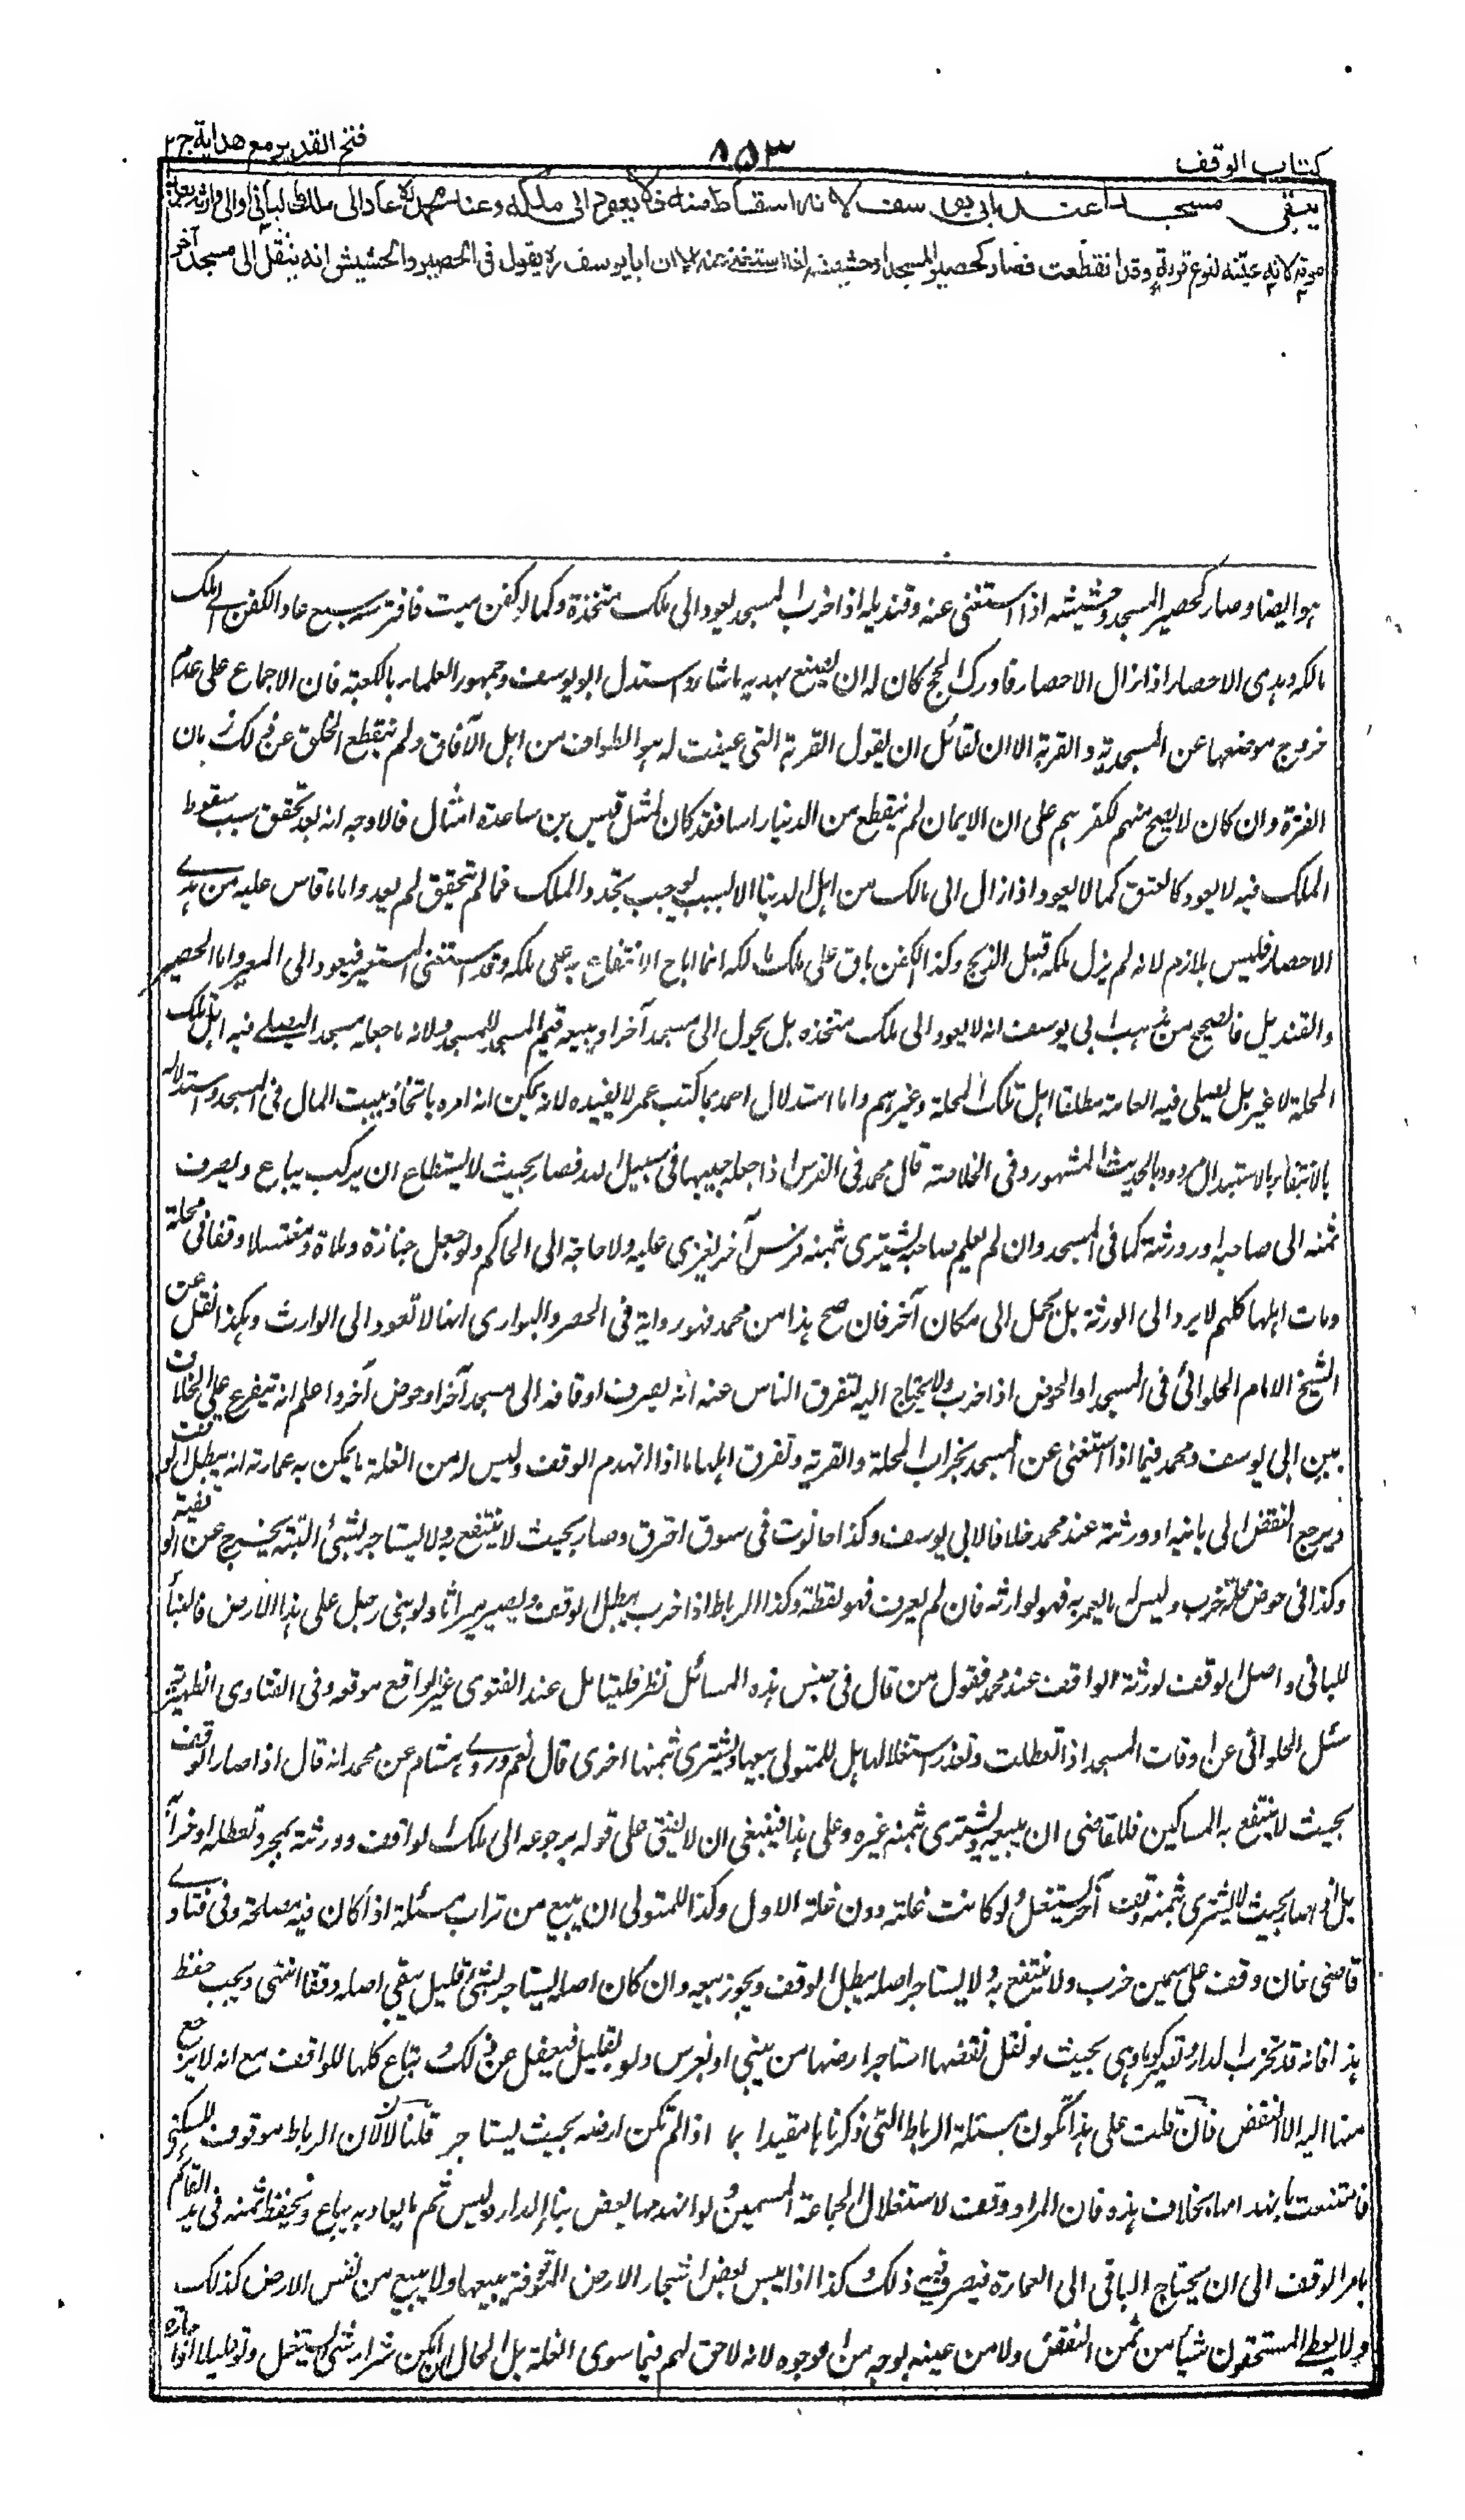 كتاب الوقف
٨٥٣
فتح القدير مع هداية ج ٢
يبقى مسجدا عند ابي يوسف لانه اسقاط منه فلا يعود الى ملكه وعند محمد يعود الى ملك الباني او الى وارثه بعد
موته لانه عينه لنوع قربة وقد انقطعت فصار كحصير المسجد او حشيشه اذا استغنى عنه الا ان ابا يوسف ره يقول في الحصير والحشيش انه ينقل الى مسجد آخر
هو ايضا وصار كحصير المسجد وحشيشه اذا استغنى عنه وقنديله اذا خرب المسجد يعود الى ملك متخذه وكما لو كفن ميت فافترسه سبع عاد الكفن الى ملك
مالكه وهدى الاحصار اذا زال الاحصار فادرك الحج كان له ان يصنع بهديه ما شاء واستدل ابو يوسف وجمهور العلماء بالكعبة فان الاجماع على عدم
خروج موضعها عن المسجدية والقربة الا ان لقائل ان يقول القربة التى عينت له هو الطواف من اهل الآفاق ولم ينقطع الخلق عن ذلك زمان
الفترة وان كان لا يصح منهم لكفرهم على ان الايمان لم ينقطع من الدنيا راسا فقد كان لمثل قيس بن ساعدة امثال فالاوجه انه بعد تحقق سبب سقوط
الملك فيه لا يعود كالمعتق كما لا يعود اذا زال الى مالك من اهل الدنيا الا لسبب يوجب تجدد الملك فما لم يتحقق لم يعد واما ما قاس عليه من هدى
الاحصار فليس بلازم لانه لم يزل ملكه قبل الذبح وكذا الكفن باق على ملك مالكه انما اباح الانتفاع به على ملكه وقد استغنى المستعير فيعود الى المعير واما الحصير
والقنديل فالصحيح من مذهب ابي يوسف انه لا يعود الى ملك متخذه بل يحول الى مسجد آخر او يبيعه قيم المسجد للمسجد ولانه ما جعله مسجدا ليصلي فيه اهل تلك
المحلة لا غير بل يصلى فيه العامة مطلقا اهل تلك المحلة وغيرهم واما استدلال احمد بما كتب عمر لا يفيده لانه يمكن انه امره باتخاذ بيت المال في المسجد واستدلاله
بالاستبدال مردود بالحديث المشهور وفى الخلاصة قال محمد فى الفرس اذا جعله حبيسا فى سبيل الله فصار بحيث لا يستطاع ان يركب يباع ويصرف
ثمنه الى صاحبه او ورثته كما فى المسجد وان لم يعلم صاحبه يشترى بثمنه فرس آخر يغزى عليه ولا حاجة الى الحاكم ولو جعل جنازة وملاة ومغتسلا وقفا فى محلة
ومات اهلها كلهم لا يرد الى الورثة بل يحمل الى مكان آخر فان صح هذا من محمد فهو رواية فى الحصر والبوارى انها لا تعود الى الوارث وهكذا نقل عن
الشيخ الامام الحلوانى فى المسجد او الحوض اذا خرب ولا يحتاج اليه لتفرق الناس عنه انه يصرف اوقافه الى مسجد آخر او حوض آخر واعلم انه يتفرع على الخلاف
بين ابى يوسف ومحمد فيما اذا استغنى عن المسجد بخراب المحلة والقرية وتفرق اهلها ما اذا انهدم الوقف وليس له من الغلة ما يمكن به عمارته انه يبطل الوقف
ويرجع النقض الى بانيه او ورثته عند محمد خلافا لابى يوسف وكذا حانوت فى سوق احترق وصار بحيث لا ينتفع به ولا يستاجر لشيء البتة يخرج عن الوقفية
وكذا فى حوض محلة خرب وليس له ما يعمر به فهو لوارثه فان لم يعرف فهو لقطة وكذا الرباط اذا خرب يبطل الوقف ويصير ميراثا ولو بنى رجل على هذا الارض فالبناء
للبانى واصل الوقف لورثة الواقف عند محمد فقول من قال فى جنس هذه المسائل نظر فليتامل عند الفتوى غير الواقع موقعه وفى الفتاوى الظهيرية
سئل الحلوانى عن اوقات المسجد اذا تعطلت وتعذر استغلالها هل للمتولى بيعها ويشترى بثمنها اخرى قال نعم وروى هشام عن محمد انه قال اذا صار الوقف
بحيث لا ينتفع به المساكين فللقاضى ان يبيعه ويشترى بثمنه غيره وعلى هذا فينبغى ان لا يفتى على قوله برجوعه الى ملك الواقف وورثته بمجرد تعطله او خرابه
بل اذا صار بحيث لا يشترى بثمنه وقف آخر يستغل ولو كانت غلته دون غلة الاول وكذا للمتولى ان يبيع من تراب مسبلة اذا كان فيه مصلحة وفى فتاوى
قاضى خان وقف على مسمين خرب ولا ينتفع به ولا يستاجر اصله يبطل الوقف ويجوز بيعه وان كان اصله يستاجر بشئ قليل يبقى اصله وقفا انتهى ويجب حفظ
هذا فانه قد تخرب الدار وتصير كوما وهى بحيث لو نقل نقضها استاجر ارضها من يبنى او يغرس ولو بقليل فيغفل عن ذلك وتباع كلها للواقف مع انه لا يرجع
منها اليه الا النقض فان قلت على هذا تكون مسئلة الرباط التى ذكرناها مقيدا بما اذا لم تكن ارضه بحيث يستاجر قلنا لا لان الرباط موقوف للسكنى
فامتنعت بانهدامها بخلاف هذه فان المراد وقفت لاستغلال الجماعة المسمين ولو انهدمها بعض بناء الدار وليس ثم ما يعاد به يباع ويحفظ ثمنه فى يد القائم
بامر الوقف الى ان يحتاج الباقى الى العمارة فيصرف فى ذلك كذا اذا يبس بعض اشجار الارض الموقوفة يبيعها ولا يبيع من نفس الارض كذلك
ولا يعطى المستحقون شيأ من ثمن النقض ولا من عينه بوجه من الوجوه لانه لا حق لهم فيما سوى الغلة بل الحال ان يمكن شراء شئ يستغل ولو قليلا